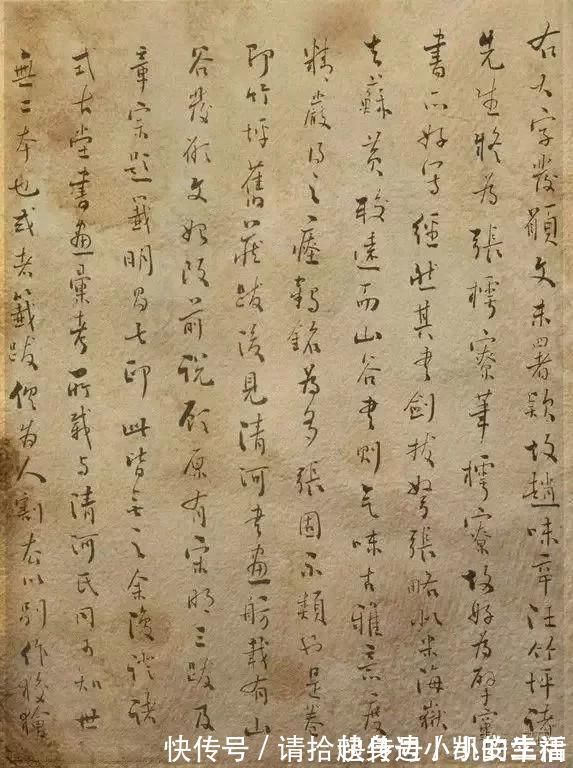 右大字發願文未署款故趙味辛汪竹坪諸
先生疑為張樗寮筆樗寮故好為擘窠
書亦好寫經然其書劍拔弩張略似米海嶽
去蘇黃較遠而山谷書則氣味古雅意度
精嚴得之瘞鶴銘為多張固不類也是卷
即竹坪舊藏跋後見清河書畫舫載有山
谷發願文始改前說顧原有宋明三跋及
章宗題籤明昌七印此皆無之余復證諸
式古堂書畫彙考所載与清河氏同可知世
無二本也或者籤跋俱為人割去以別作狡獪
快传号 / 请拾